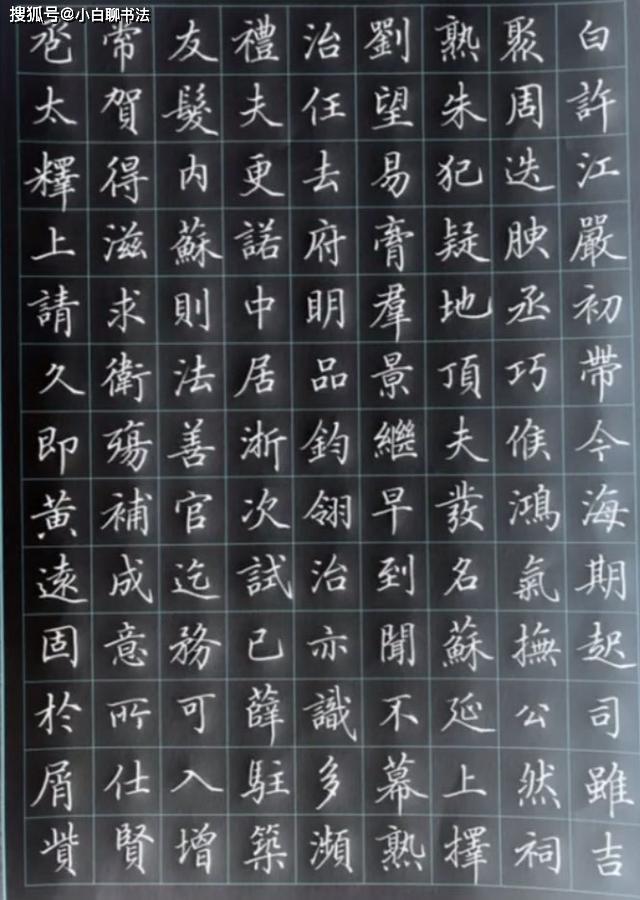 搜狐号@小白聊书法
白許江嚴初帶今海期起司雖吉
聚周迭腴丞巧候鴻氣撫公然祠
熟朱犯疑地頂夫發名蘇延上擇
劉望易膏羣景繼早到聞不幕熟
治任去府明品鈞翎治亦識多瀕
禮夫更諾中居浙次試已薛駐築
友髮內蘇則法善官迄務可入增
常賀得滋求衛殤補成意所仕賢
太釋上請久即黃遠固於屑貲